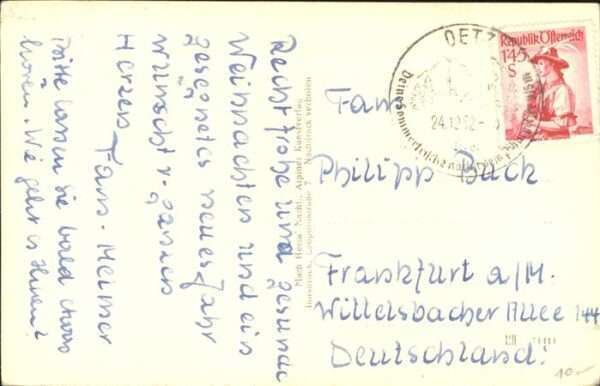 Recht frohe und gesunde
Weihnachten und ein
gesegnetes neues Jahr
wünscht v. ganzem
Herzen
Fam. Meixner
Bitte lassen Sie bald etwas
hören. Wie geht es Ihnen?
Innsbruck, Leopoldstraße 7 Nachdruck verboten
Alpiner Kunstverlag
OETZ
24.12.52
Republik Österreich
1'45
S
Fam
Philipp Buck
Frankfurt a/M.
Wittelsbacher Allee 144
Deutschland!
10.-